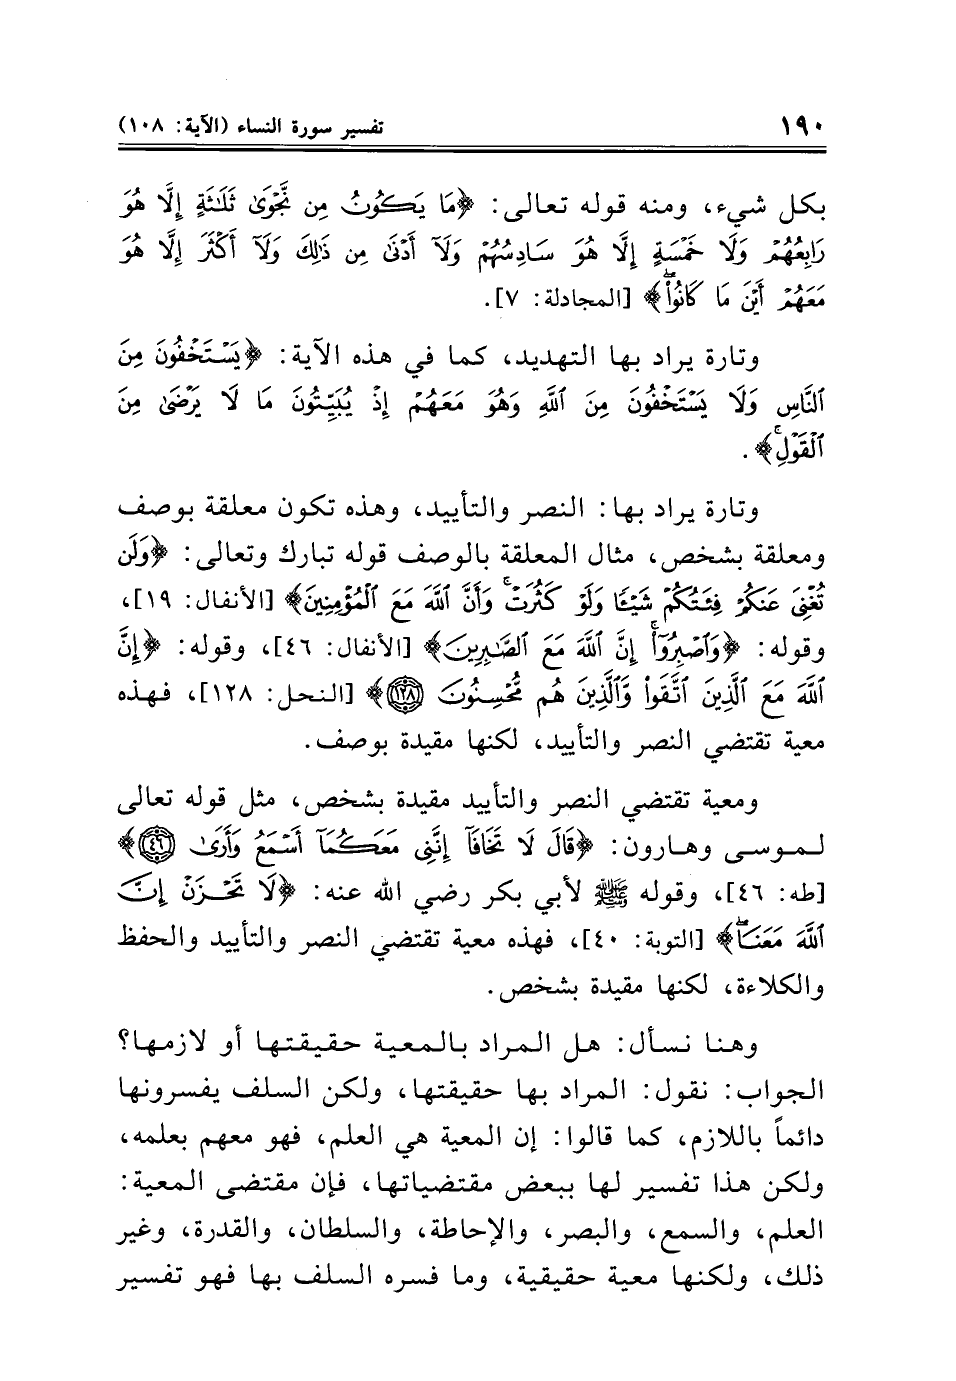 ١٩٠ تفسير سورة النساء (الآية: ١٠٨)
بكل شيء، ومنه قوله تعالى: ﴿مَا يَكُونُ مِن نَّجْوَىٰ ثَلَاثَةٍ إِلَّا هُوَ
رَابِعُهُمْ وَلَا خَمْسَةٍ إِلَّا هُوَ سَادِسُهُمْ وَلَا أَدْنَىٰ مِن ذَٰلِكَ وَلَا أَكْثَرَ إِلَّا هُوَ
مَعَهُمْ أَيْنَ مَا كَانُوا۟ۖ﴾ [المجادلة: ٧].
وتارة يراد بها التهديد، كما في هذه الآية: ﴿يَسْتَخْفُونَ مِنَ
ٱلنَّاسِ وَلَا يَسْتَخْفُونَ مِنَ ٱللَّهِ وَهُوَ مَعَهُمْ إِذْ يُبَيِّتُونَ مَا لَا يَرْضَىٰ مِنَ
ٱلْقَوْلِۚ﴾.
وتارة يراد بها: النصر والتأييد، وهذه تكون معلقة بوصف
ومعلقة بشخص، مثال المعلقة بالوصف قوله تبارك وتعالى: ﴿وَلَن
تُغْنِىَ عَنكُمْ فِئَتُكُمْ شَيْـًٔا وَلَوْ كَثُرَتْۚ وَأَنَّ ٱللَّهَ مَعَ ٱلْمُؤْمِنِينَ﴾ [الأنفال: ١٩]،
وقوله: ﴿وَٱصْبِرُوٓا۟ۚ إِنَّ ٱللَّهَ مَعَ ٱلصَّـٰبِرِينَ﴾ [الأنفال: ٤٦]، وقوله: ﴿إِنَّ
ٱللَّهَ مَعَ ٱلَّذِينَ ٱتَّقَوا۟ وَّٱلَّذِينَ هُم مُّحْسِنُونَ ١٢٨﴾ [النحل: ١٢٨]، فهذه
معية تقتضي النصر والتأييد، لكنها مقيدة بوصف.
ومعية تقتضي النصر والتأييد مقيدة بشخص، مثل قوله تعالى
لموسى وهارون: ﴿قَالَ لَا تَخَافَآ إِنَّنِى مَعَكُمَآ أَسْمَعُ وَأَرَىٰ ٤٦﴾
[طه: ٤٦]، وقوله ﷺ لأبي بكر رضي الله عنه: ﴿لَا تَحْزَنْ إِنَّ
ٱللَّهَ مَعَنَاۖ﴾ [التوبة: ٤٠]، فهذه معية تقتضي النصر والتأييد والحفظ
والكلاءة، لكنها مقيدة بشخص.
وهنا نسأل: هل المراد بالمعية حقيقتها أو لازمها؟
الجواب: نقول: المراد بها حقيقتها، ولكن السلف يفسرونها
دائماً باللازم، كما قالوا: إن المعية هي العلم، فهو معهم بعلمه،
ولكن هذا تفسير لها ببعض مقتضياتها، فإن مقتضى المعية:
العلم، والسمع، والبصر، والإحاطة، والسلطان، والقدرة، وغير
ذلك، ولكنها معية حقيقية، وما فسره السلف بها فهو تفسير